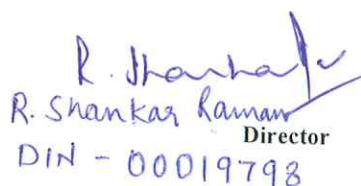 R. Shankar
R. Shankar Raman
Director
DIN - 00019798